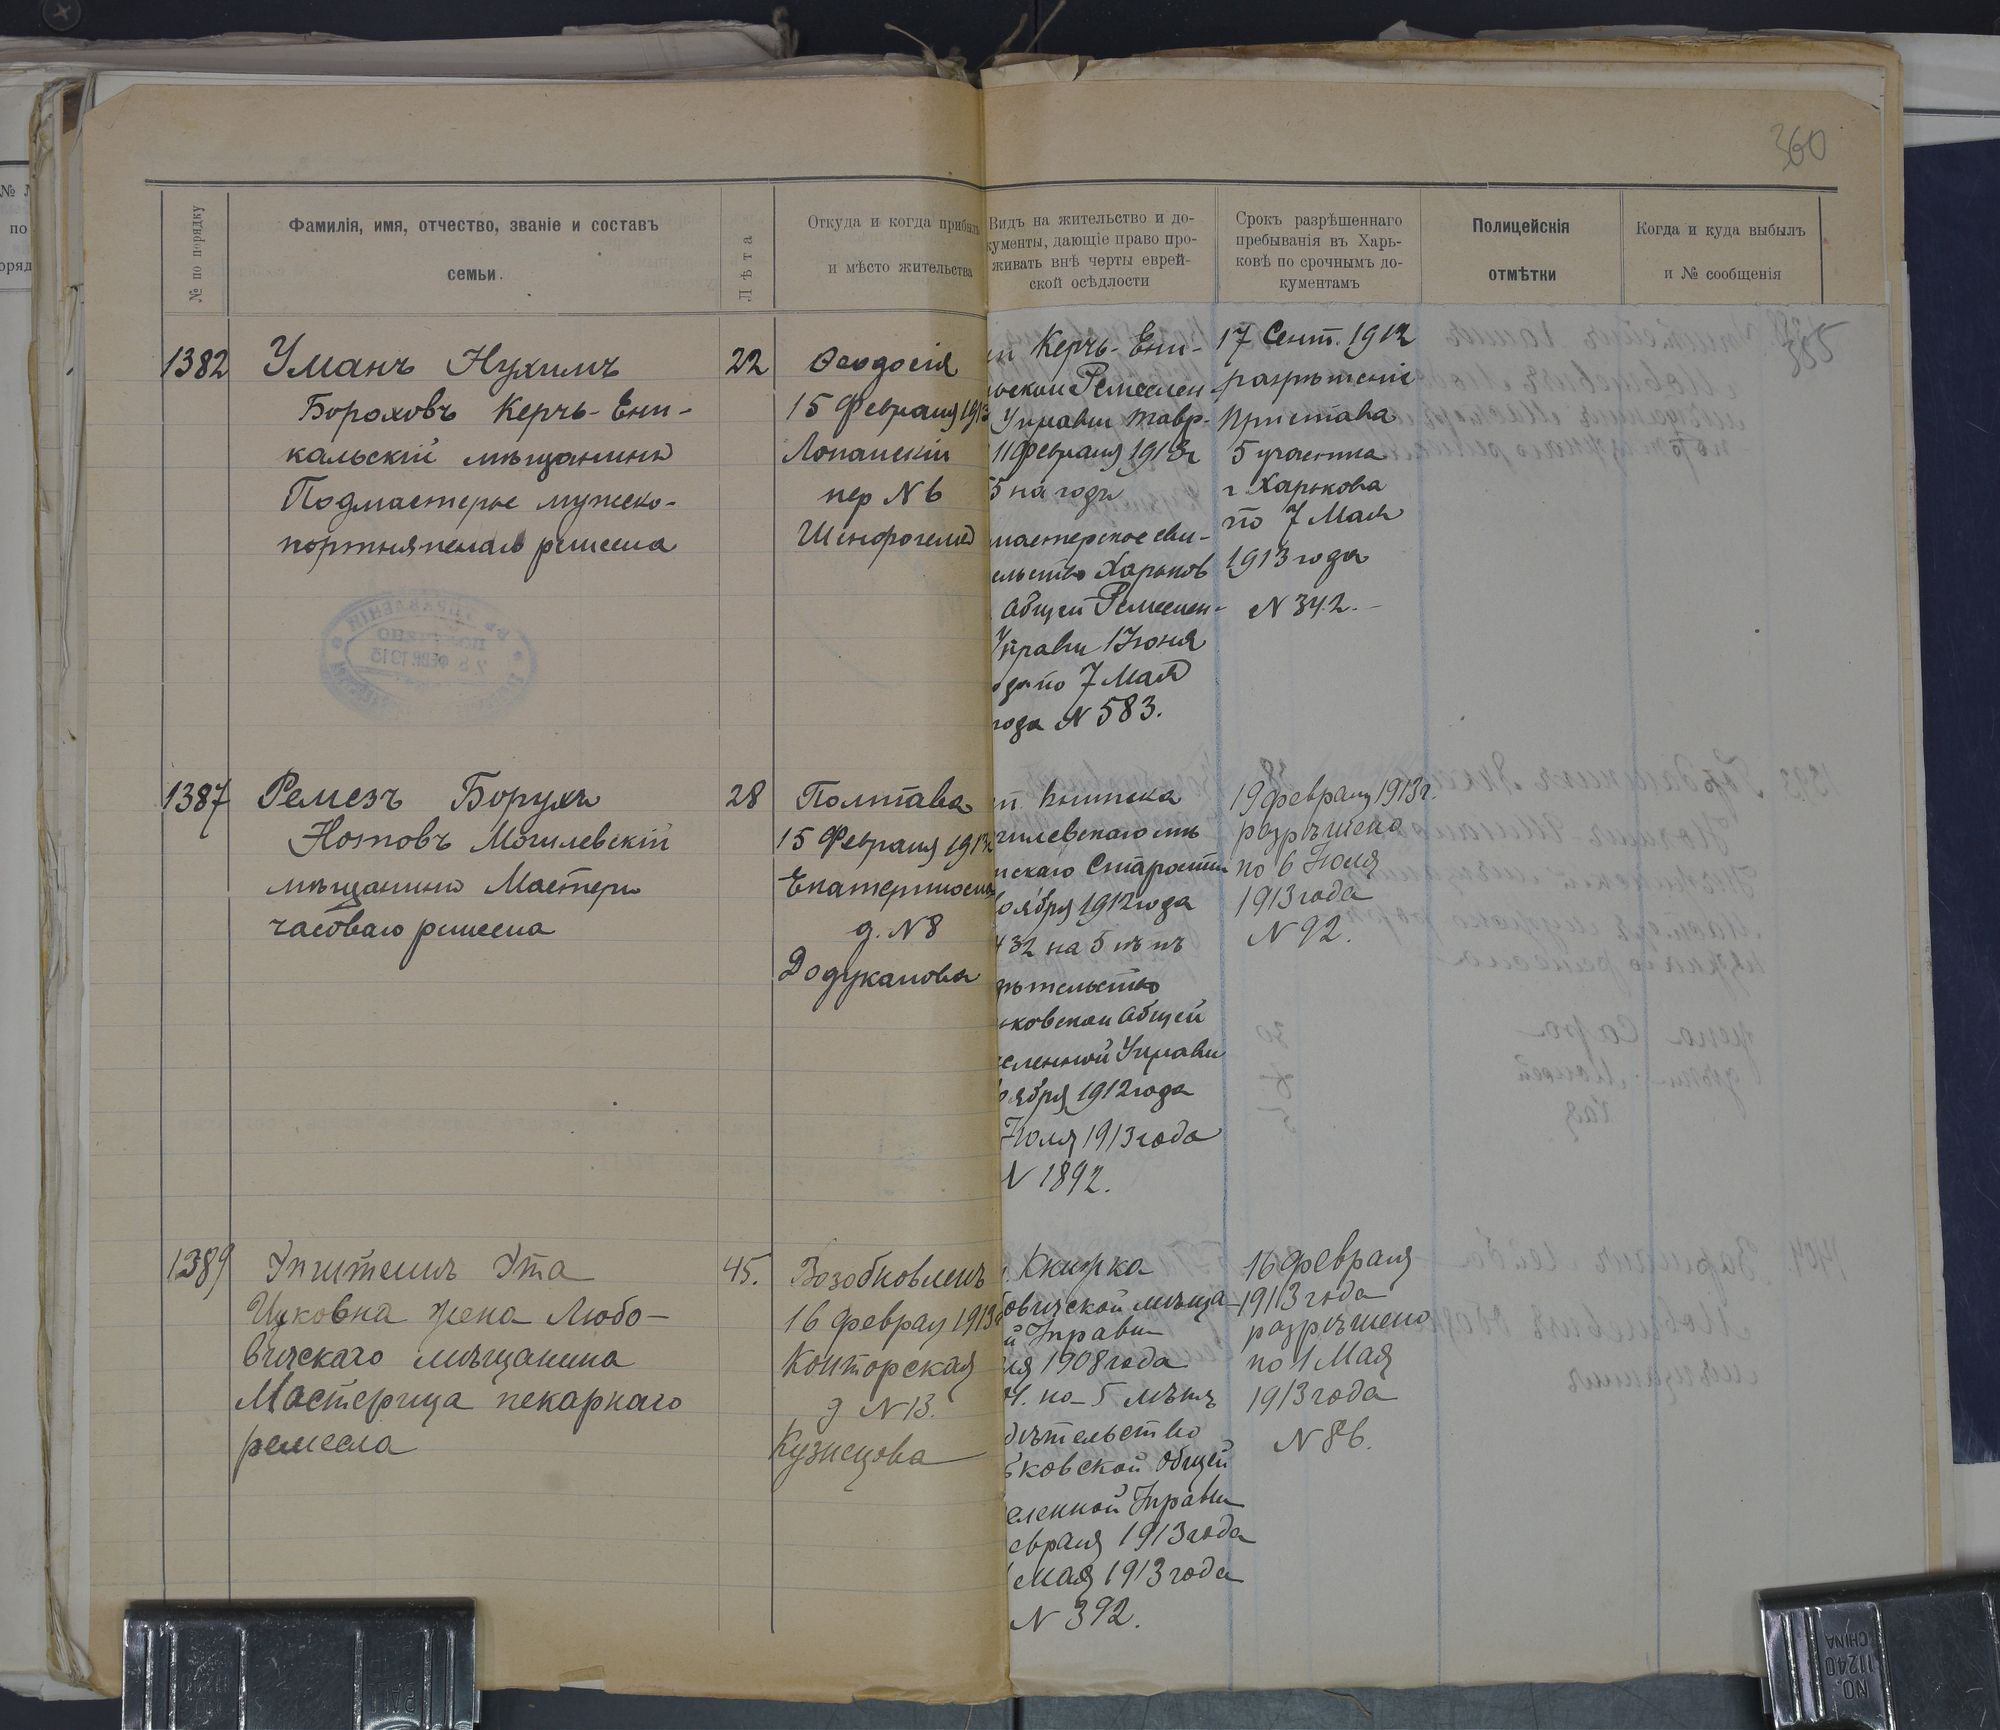 360
№ по порядку
Фамилія, имя, отчество, званіе и составъ
семьи.
Лѣта
Откуда и когда прибылъ
и мѣсто жительства
Видъ на жительство и до-
кументы, дающіе право про-
живать внѣ черты еврей-
ской осѣдлости
Срокъ разрѣшеннаго
пребыванія въ Харь-
ковѣ по срочнымъ до-
кументамъ
Полицейскія
отмѣтки
Когда и куда выбылъ
и № сообщенія
1382
Уманъ Нухимъ
Бороховъ Керчь-Ени-
кальскій мѣщанинъ
Подмастерье мужско-
портняжнаго ремесла
22
Ѳеодосія
15 Февраля 1913
Лопанскій
пер N 6
Керчь-Ени-
ской Ремеслен-
Управы Тавр.
11 Февраля 1913г
5 на годъ
мастерское сви-
ельство Харьков
Общей Ремеслен-
Управы 1 Юня
по 7 Мая
года N 583.
17 Сент. 1912
разрѣшеніе
Пристава
5 участка
г. Харькова
по 7 Мая
1913 года
N 342.
1387
Ремезъ Борухъ
Нотовъ Могилевскій
мѣщанинъ Мастеръ
часоваго ремесла
28
Полтава
15 Февраля 1913
Екатеринослав
д. N 8
Додуканова
гилевскаго мѣ
нскаго Старосты
оября 1912 года
432 на 5 лѣтъ
ѣтельство
ьковской Общей
сленной Управы
оября 1912 года
Юля 1913 года
N 1892.
19 февраля 1913г.
разрѣшено
по 6 Юля
1913 года
N 92.
1389
Ута
Ицковна жена Любо-
вичскаго мѣщанина
Мастерица пекарнаго
ремесла
45.
Возобновленъ
16 Февраля 1913
Конторская
д N 13.
Кузнецова
Книжка
овичской мѣща-
й Управы
ля 1908 года
дѣтельство
ьковской Общей
еленной Управы
евраля 1913 года
Мая 1913 года
N 392.
16 Февраля
1913 года
разрѣшено
по 1 Мая
1913 года
N 86.
NO.
11240
CHINA